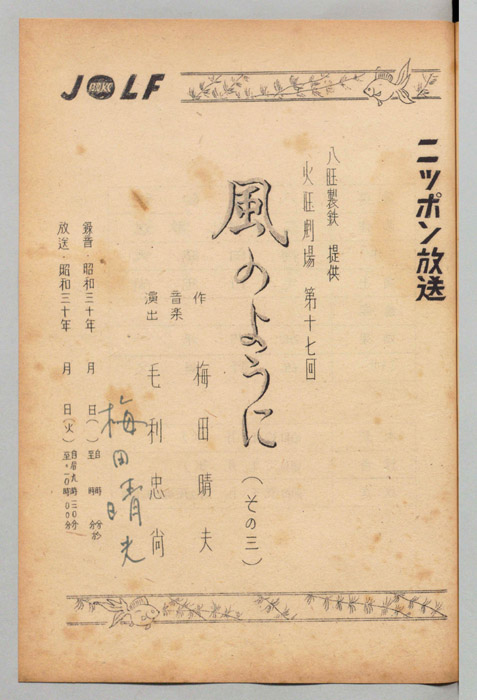 JOLF
ニッポン放送
八幡製鉄 提供
火曜劇場 第十七回
風のように
(その三)
作 梅田晴夫
音楽
演出 毛利忠尚
梅田晴夫
録音 昭和三十年 月 日( ) 自 時 分 至 時 分
放送・昭和三十年 月 日(火) 自后九時三〇分 至・一〇時〇〇分